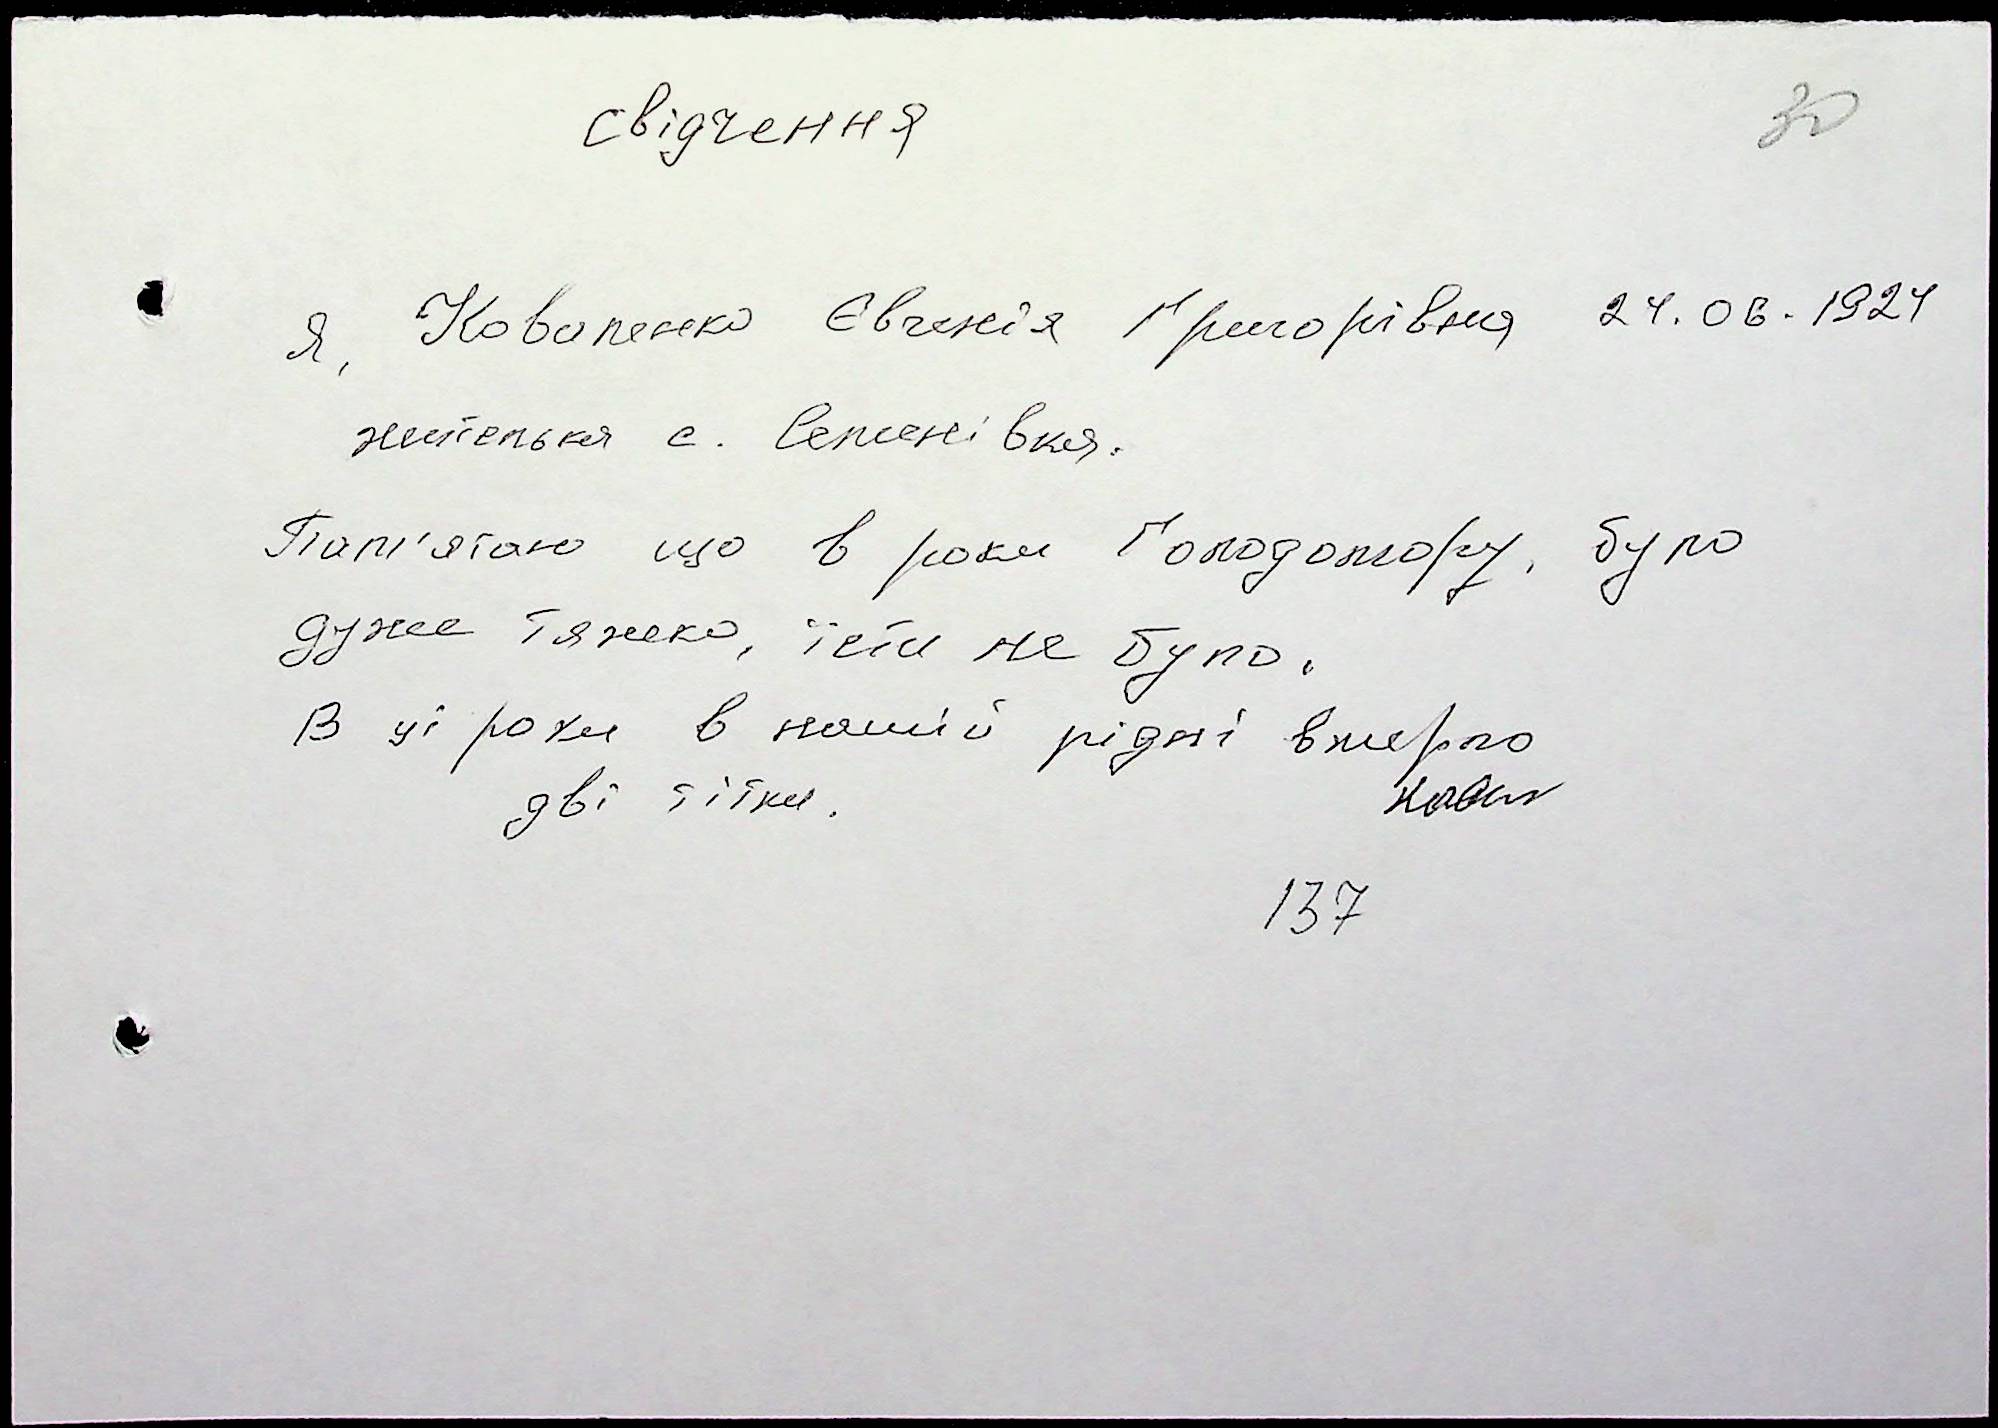 свідчення
30
Я, Коваленко Євгенія Григорівна 24.06.1924
жителька с. Семенівка.
Пам'ятаю що в роки Голодомору, було
дуже тяжко, їсти не було.
В ці роки в нашій рідні вмерло
дві тітки.
137